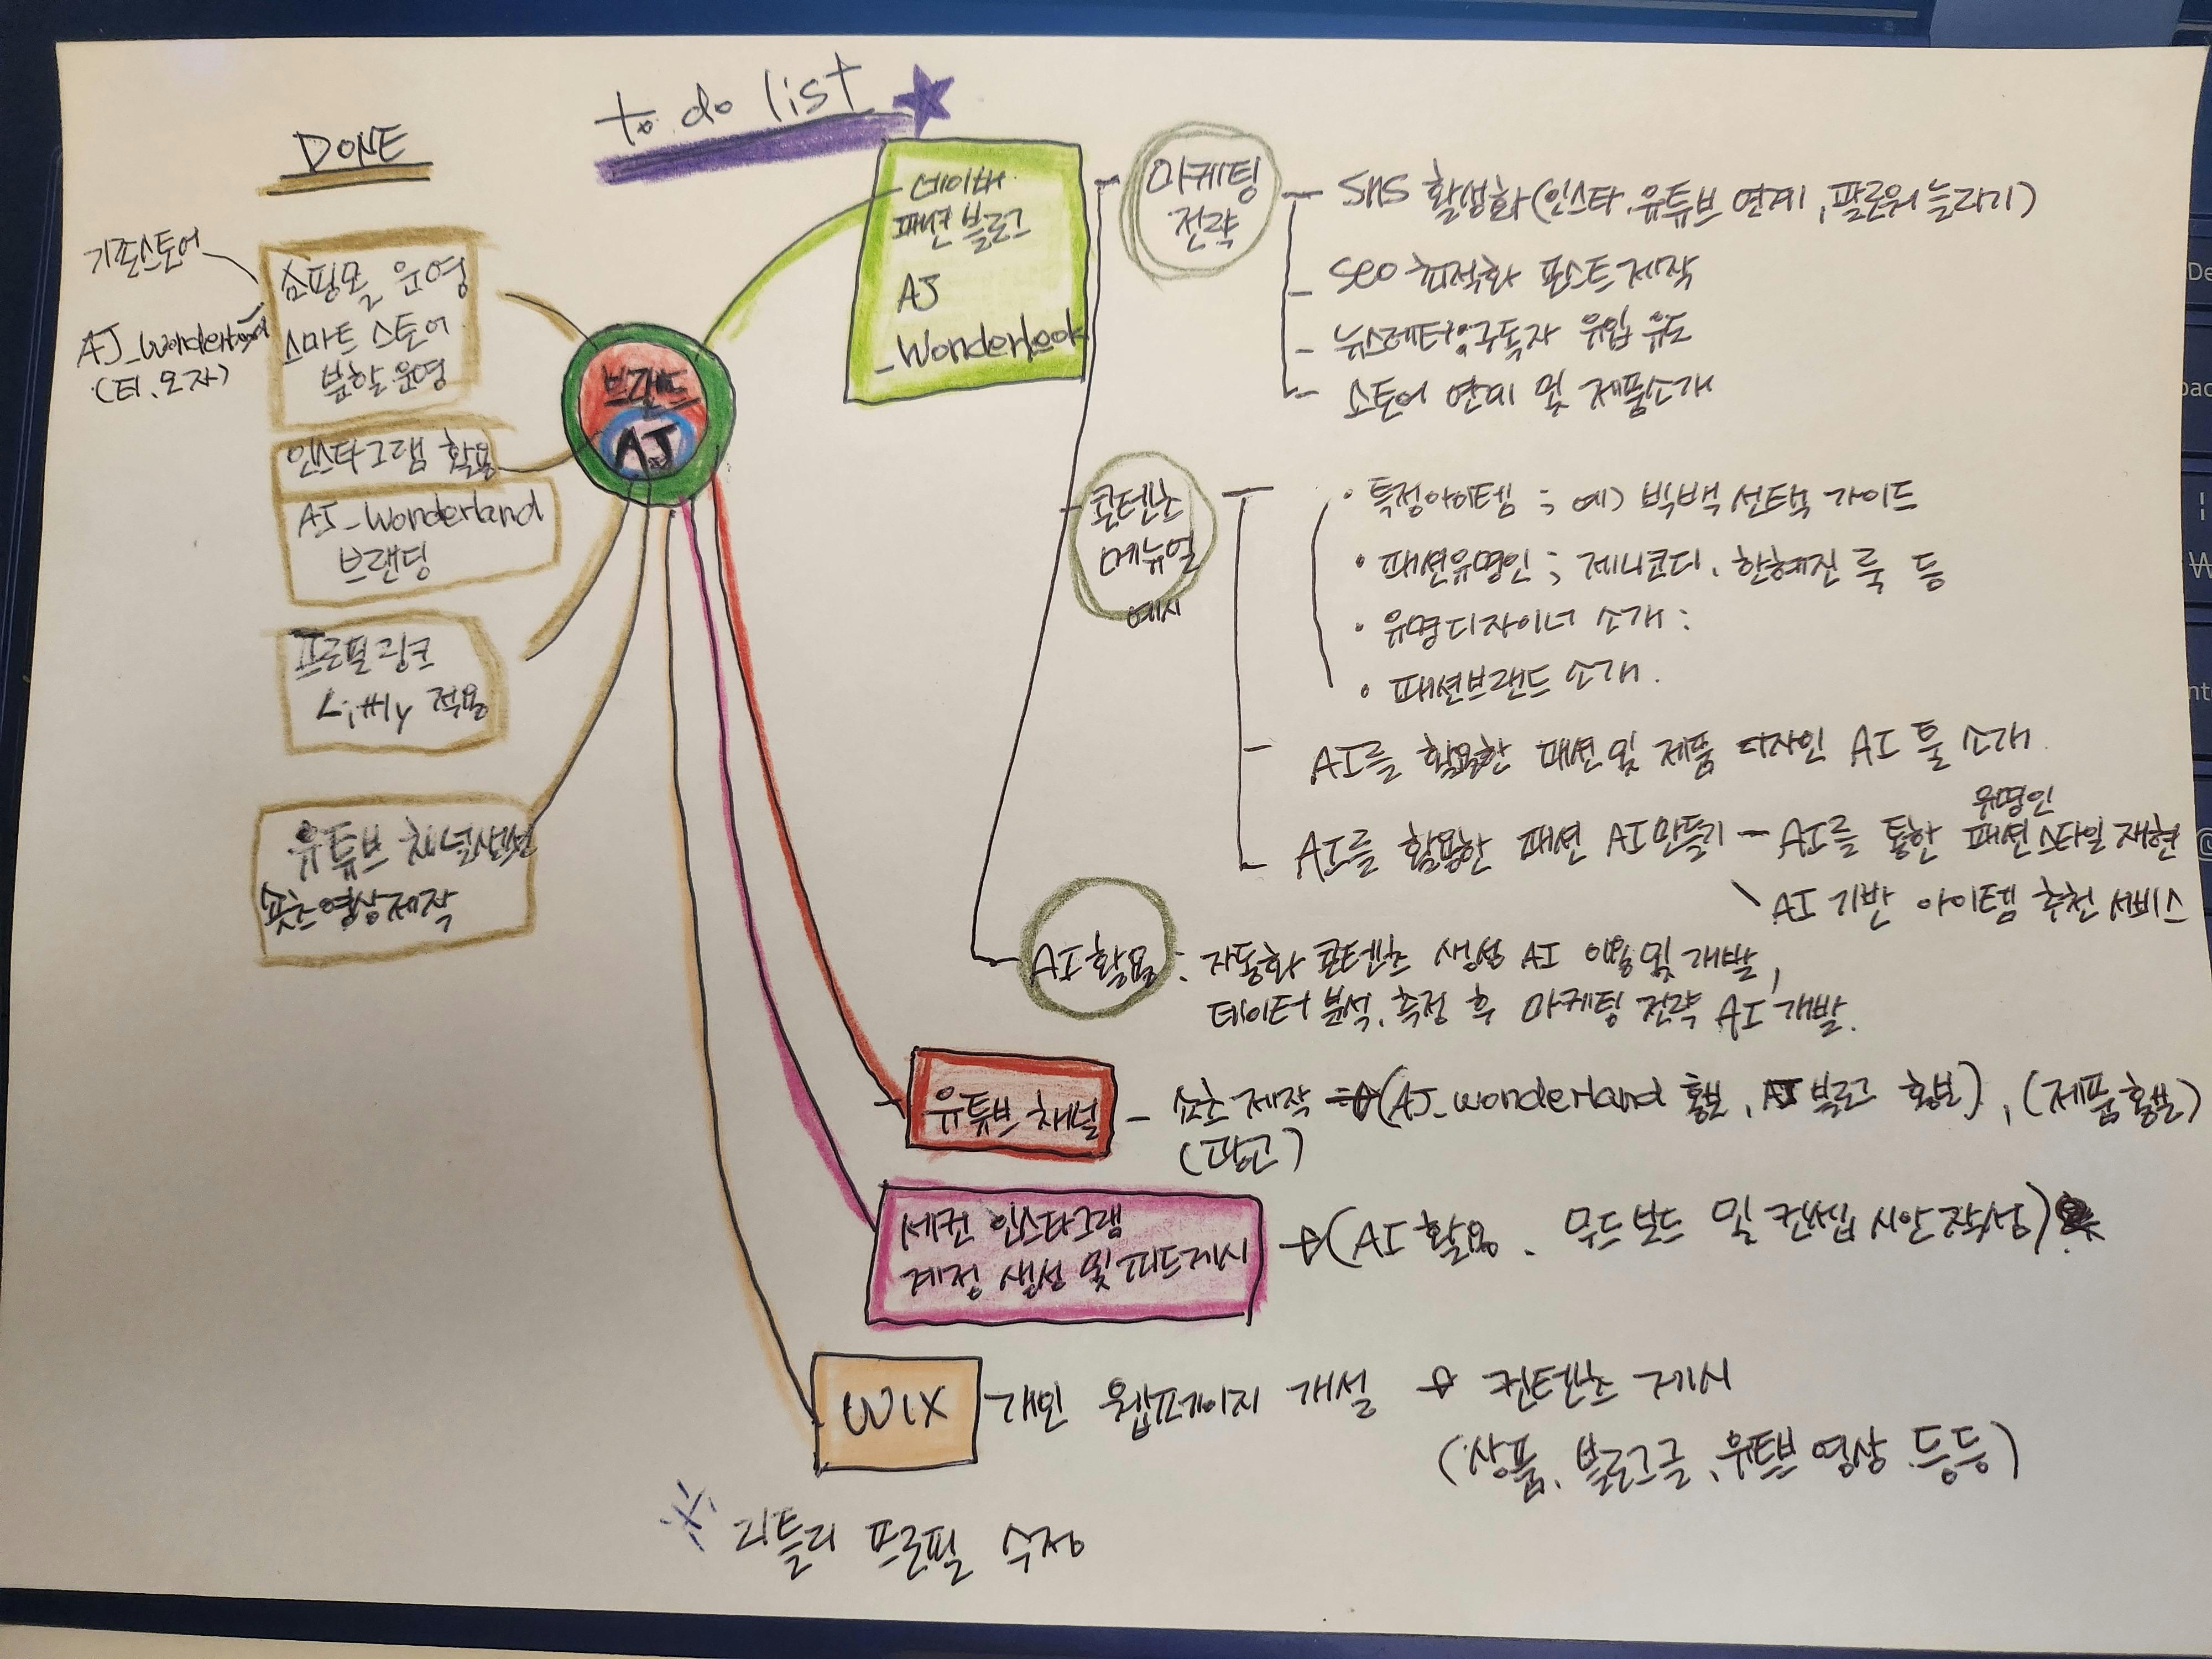 to do list
DONE
기존스토어
AJ_Wonderland
(티.모자)
쇼핑몰 운영
스마트 스토어
분할.운영
인스타그램 활용
AJ_Wonderland
브랜딩
프로필링크
Littly 적용
유튜브 채널생성
숏츠영상제작
브랜드
AJ
네이버
패션 블로그
AJ
_Wonderlook
마케팅
전략
SNS 활성화(인스타.유튜브 연계, 팔로워 늘리기)
SEO 최적화 포스트 제작
뉴스레터: 구독자 유입 유도
스토어 연계 및 제품소개
콘텐츠
메뉴얼
예시
• 특정아이템 ; 예) 빅백 선택 가이드
• 패션유명인 ; 제니코디. 한혜진 룩 등
• 유명디자이너 소개 :
• 패션브랜드 소개.
AI를 활용한 패션 및 제품 디자인 AI 툴 소개.
AI를 활용한 패션 AI만들기 - AI를 통한 유명인 패션스타일 재현
AI 기반 아이템 추천 서비스
AI 활용 : 자동화 콘텐츠 생성 AI 이용 및 개발,
데이터 분석, 측정 후 마케팅 전략 AI 개발.
유튜브 채널 - 쇼츠 제작 → (AJ_wonderland 홍보, AJ 블로그 홍보), (제품홍보)
(광고)
세컨 인스타그램
계정 생성 및 피드게시
→ (AI 활용. 무드보드 및 컨셉 시안작성)
WIX - 개인 웹페이지 개설 → 컨텐츠 게시
(상품, 블로그글, 유튜브 영상 등등)
※ 리틀리 프로필 수정